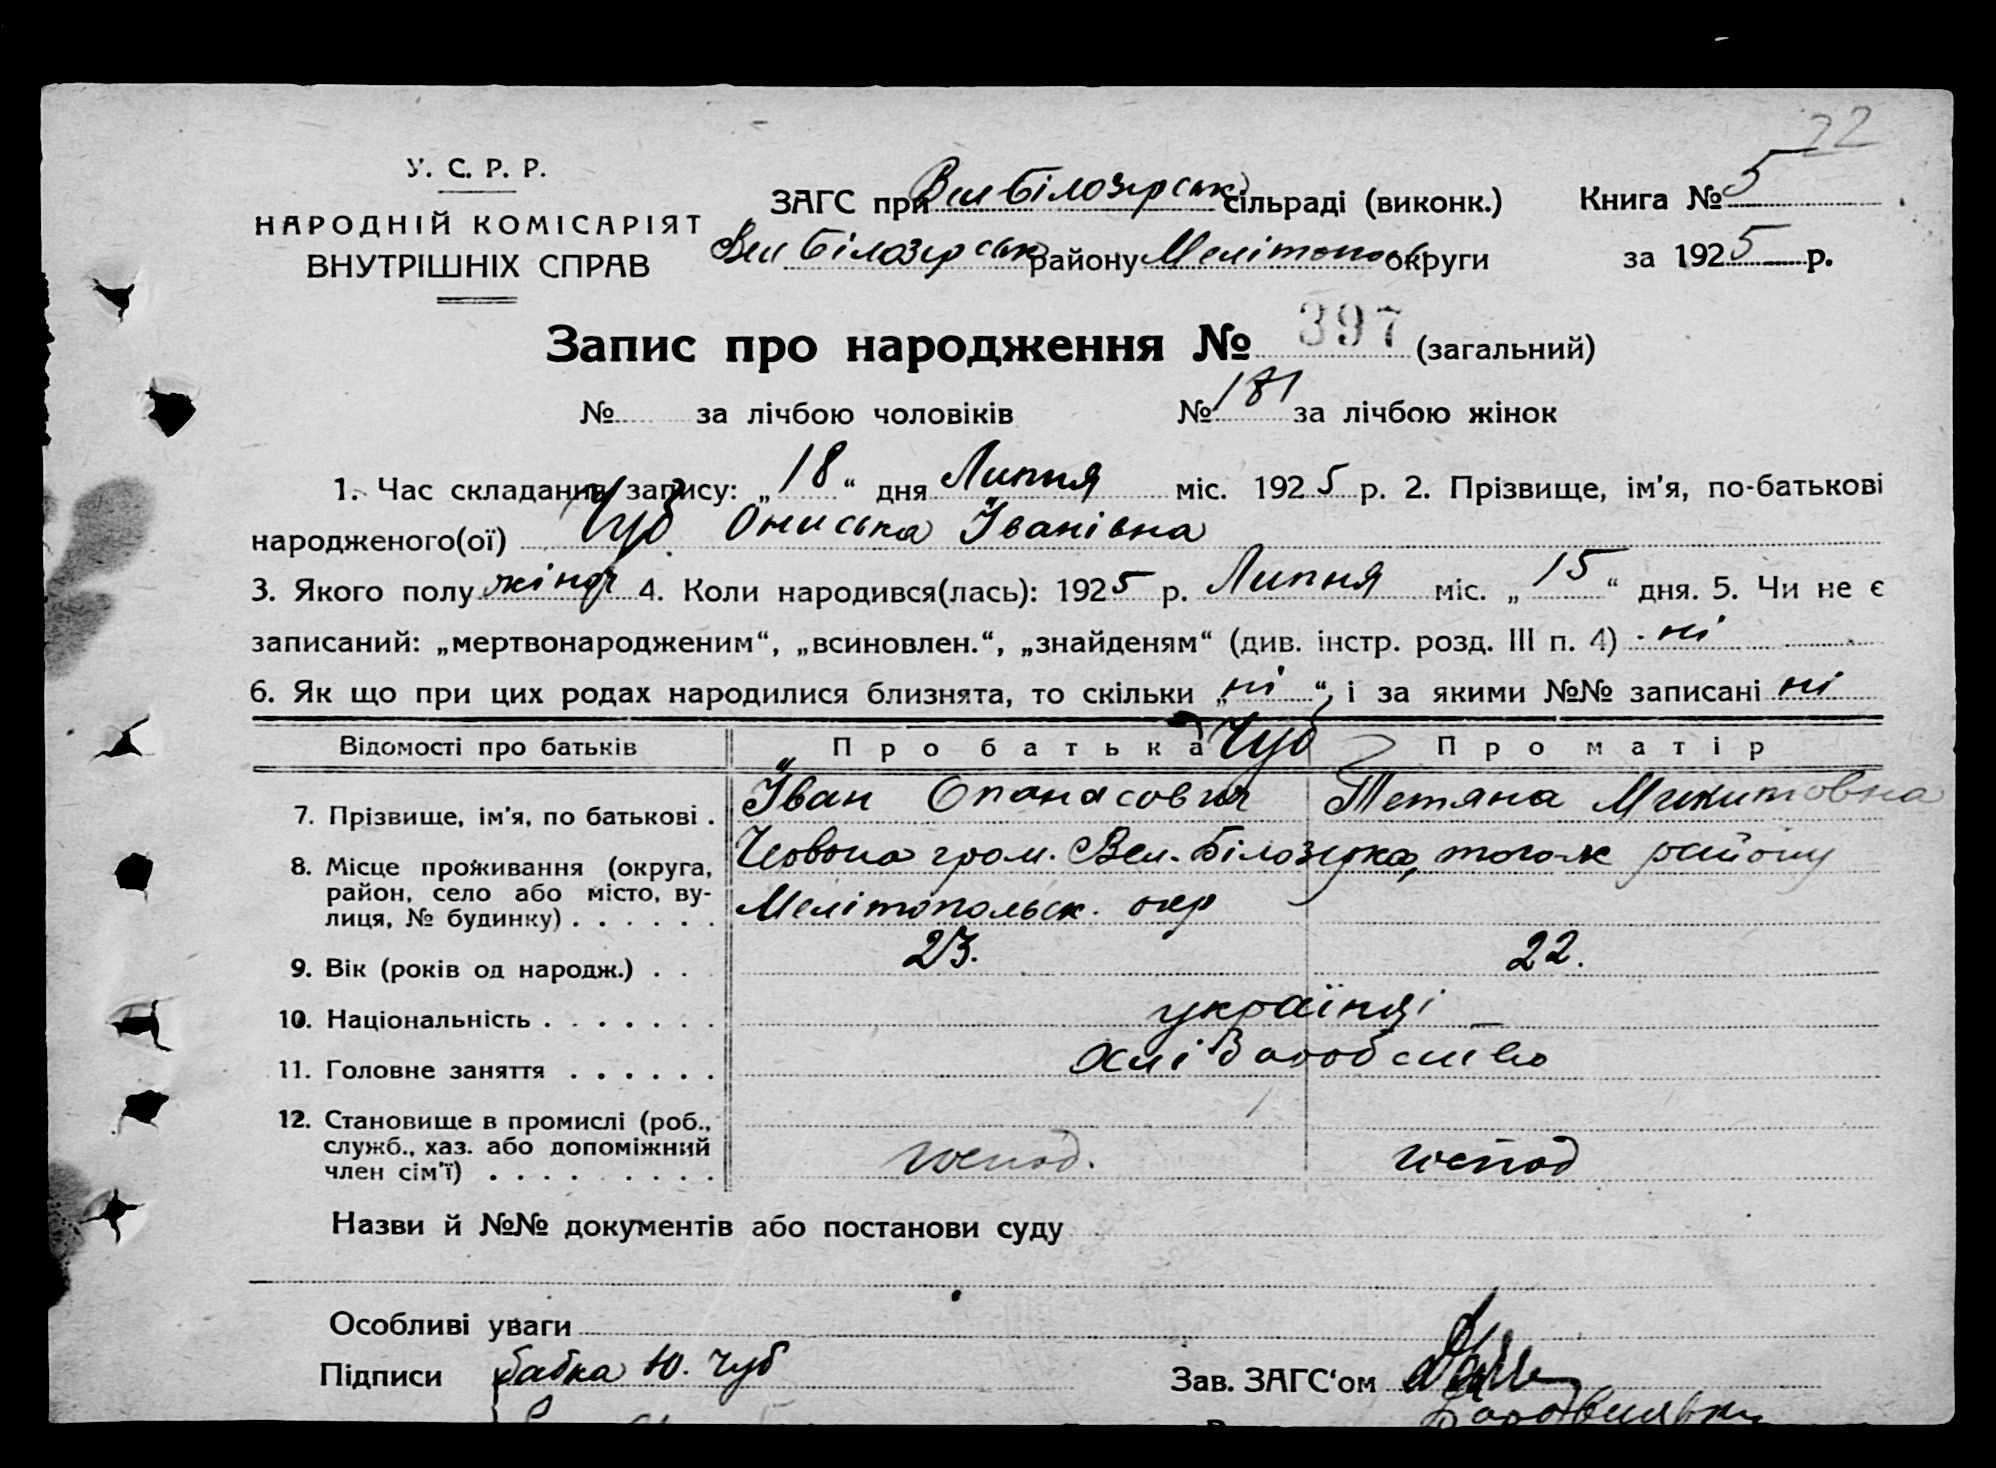 22
У. С. Р. Р.
НАРОДНІЙ КОМІСАРІЯТ
ВНУТРІШНІХ СПРАВ
ЗАГС при Вел Білозірськ сільраді (виконк.)
Вел Білозірськ району Мелітопол округи
Книга № 5
за 1925 р.
Запис про народження № 397 (загальний)
№ за лічбою чоловіків № 181 за лічбою жінок
1. Час складання запису: „18“ дня Липня міс. 1925 р. 2. Прізвище, ім'я, по-батькові
народженого(ої) Чуб Ониська Іванівна
3. Якого полу жіноч 4. Коли народився(лась): 1925 р. Липня міс. „15“ дня. 5. Чи не є
записаний: „мертвонародженим“, „всиновлен.“, „знайденям“ (див. інстр. розд. III п. 4) ні
6. Як що при цих родах народилися близнята, то скільки „ні“, і за якими №№ записані ні
Відомості про батьків Про батька Чуб Про матір
7. Прізвище, ім'я, по батькові . Іван Опанасович Тетяна Микитовна
8. Місце проживання (округа, район, село або місто, вулиця, № будинку) . . . . . . Червона гром. Вел. Білозірка, того-ж району
Мелітопольськ. окр
9. Вік (років од народж.) . . 23. 22.
10. Національність . . . . . . . українці
11. Головне заняття . . . . . . Хліборобство
12. Становище в промислі (роб.,
служб., хаз. або допоміжний
член сім'ї) . . . . . . . . . господ. господ
Назви й №№ документів або постанови суду
Особливі уваги
Підписи бабка Ю. Чуб Зав. ЗАГС'ом